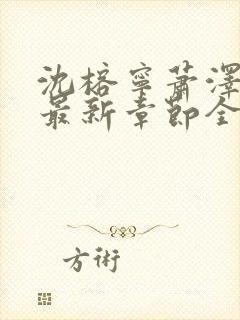 沈榕寧蕭澤
最新章節全
方術